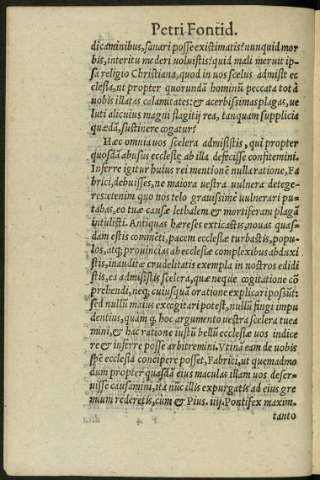 Petri Fontid.
dicaminibus, sanari posse existimatis? nunquid mor
bis, interitu mederi uoluistis? quid mali meruit ip-
sa religio Christiana, quod in uos scelus admisit ec
clesia, ut propter quorundã hominũ peccata tot à
uobis illatas calamitates: & acerbissimas plagas, ue
luti alicuius magni flagitij rea, tanquam supplicia
quædã, sustinere cogatur?
Hæc omnia uos scelera admisistis, qui propter
quosdã abusus ecclesiæ ab illa defecisse confitemini.
Inferre igitur huius rei mentionẽ nulla ratione, Fa
brici, debuisses, ne maiora uestra uulnera detege-
res: etenim quo nos telo grauissimè uulnerari pu-
tabas, eo tuæ causæ lethalem & mortiferam plagã
intulisti. Antiquas hæreses extictas, nouas quas-
dam estis cõmẽti, pacem ecclesiæ turbastis, popu-
los, atq; prouincias ab ecclesiæ complexibus abduxi
stis, inauditæ crudelitatis exempla in nostros edidi
stis, ea admisistis scelera, quæ neque cogitatione cõ
prehendi, neq; cuiusquã oratione explicari possũt:
sed nullũ maius excogitari potest, nullũ fingi impu
dentius, quàm q; hoc argumento uestra scelera tuea
mini, & hac ratione iustũ bellũ ecclesiæ uos indice
re & inferre posse arbitremini. Vtinã eam de uobis
spẽ ecclesia concipere posset, Fabrici, ut quemadmo
dum propter quasdã eius maculas illam uos deser-
uisse causamini, ita nũc illis expurgatis ad eius gre
mium rederetis, cùm & Pius. iiij. Pontifex maxim.
tanto